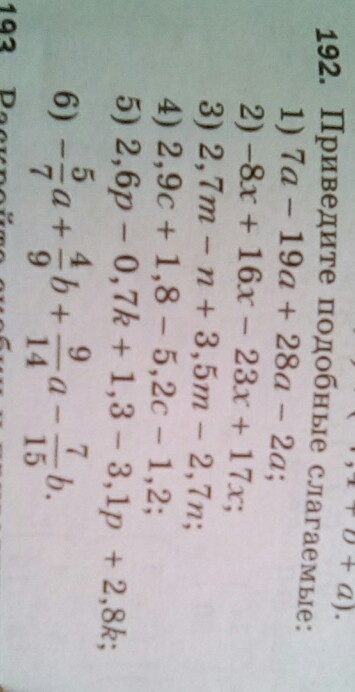 , 4 + b + a).
192. Приведите подобные слагаемые:
1) 7a − 19a + 28a − 2a;
2) −8x + 16x − 23x + 17x;
3) 2,7m − n + 3,5m − 2,7n;
4) 2,9c + 1,8 − 5,2c − 1,2;
5) 2,6p − 0,7k + 1,3 − 3,1p + 2,8k;
6) −5/7 a + 4/9 b + 9/14 a − 7/15 b.
193. Раскройте скобки и